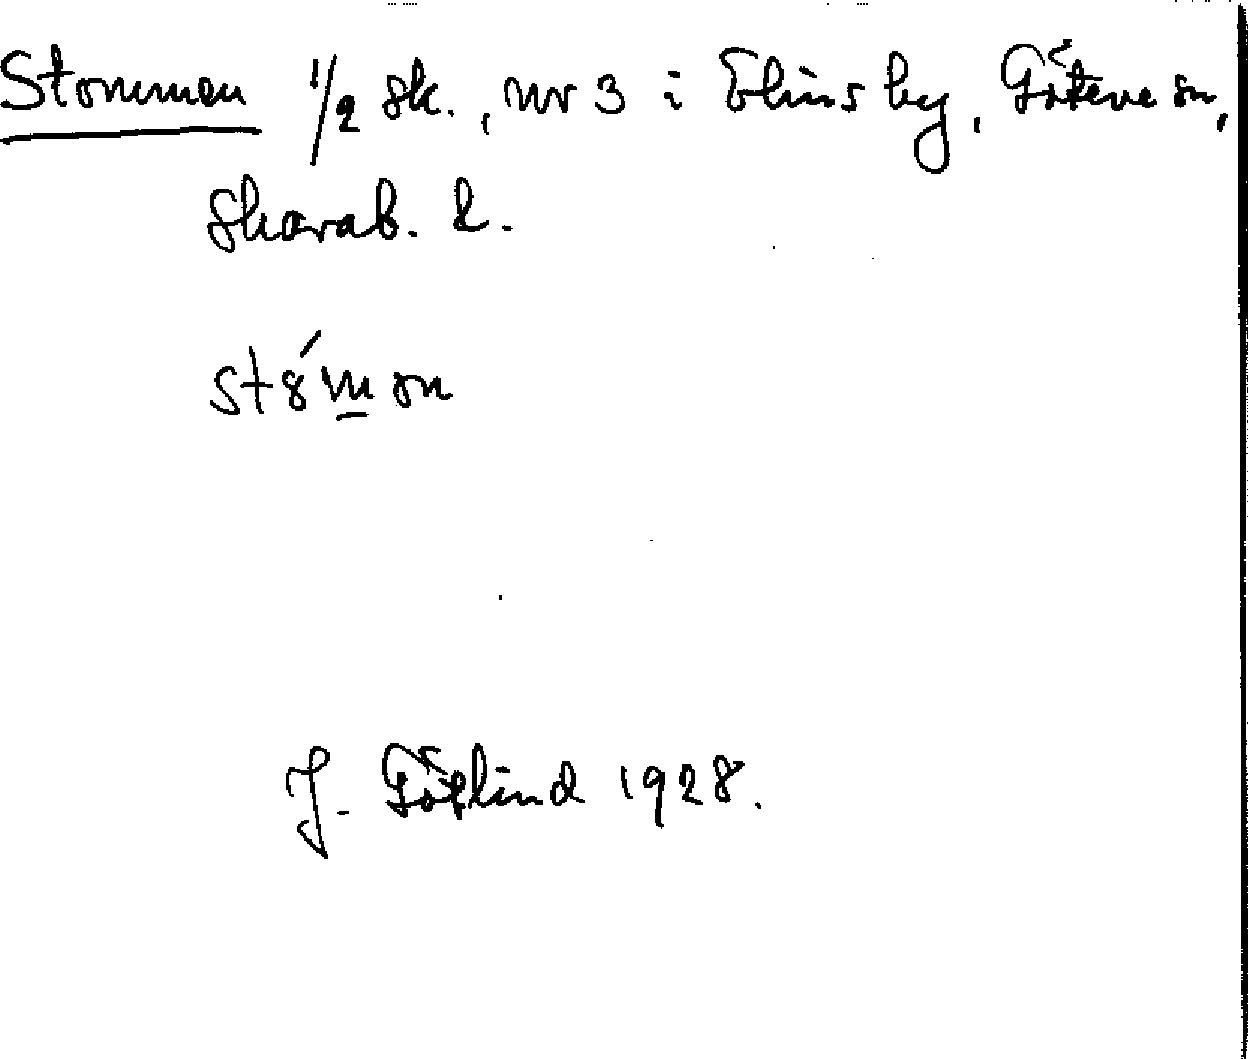 Stommen 1/2 sk., nr 3 i Elins by, Göteve sn,
Skarab. l.
J. Götlind 1928.